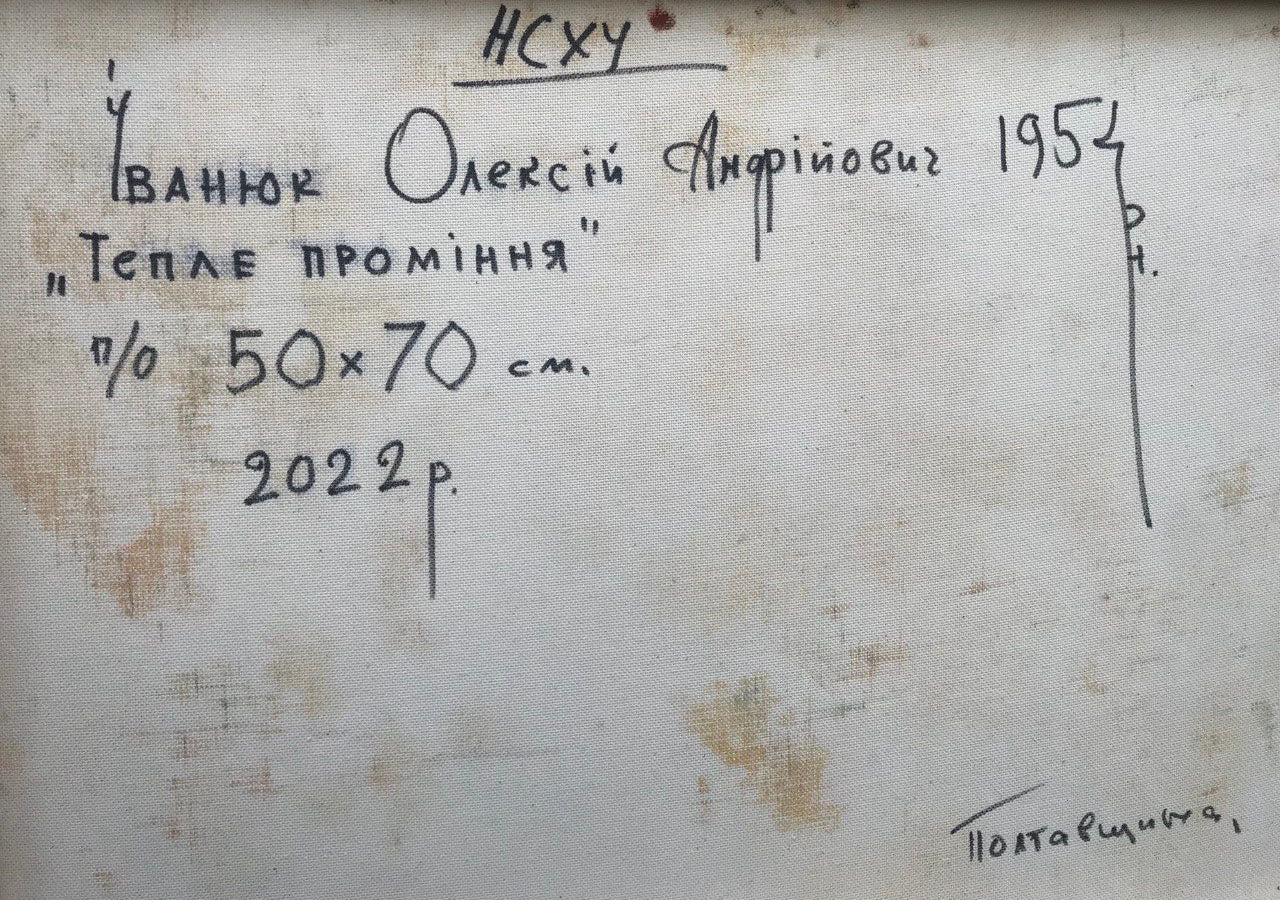 НСХУ
Іванюк Олексій Андрійович 1954 р н.
„Тепле проміння"
п/о 50×70 см.
2022 р.
Полтавщина,